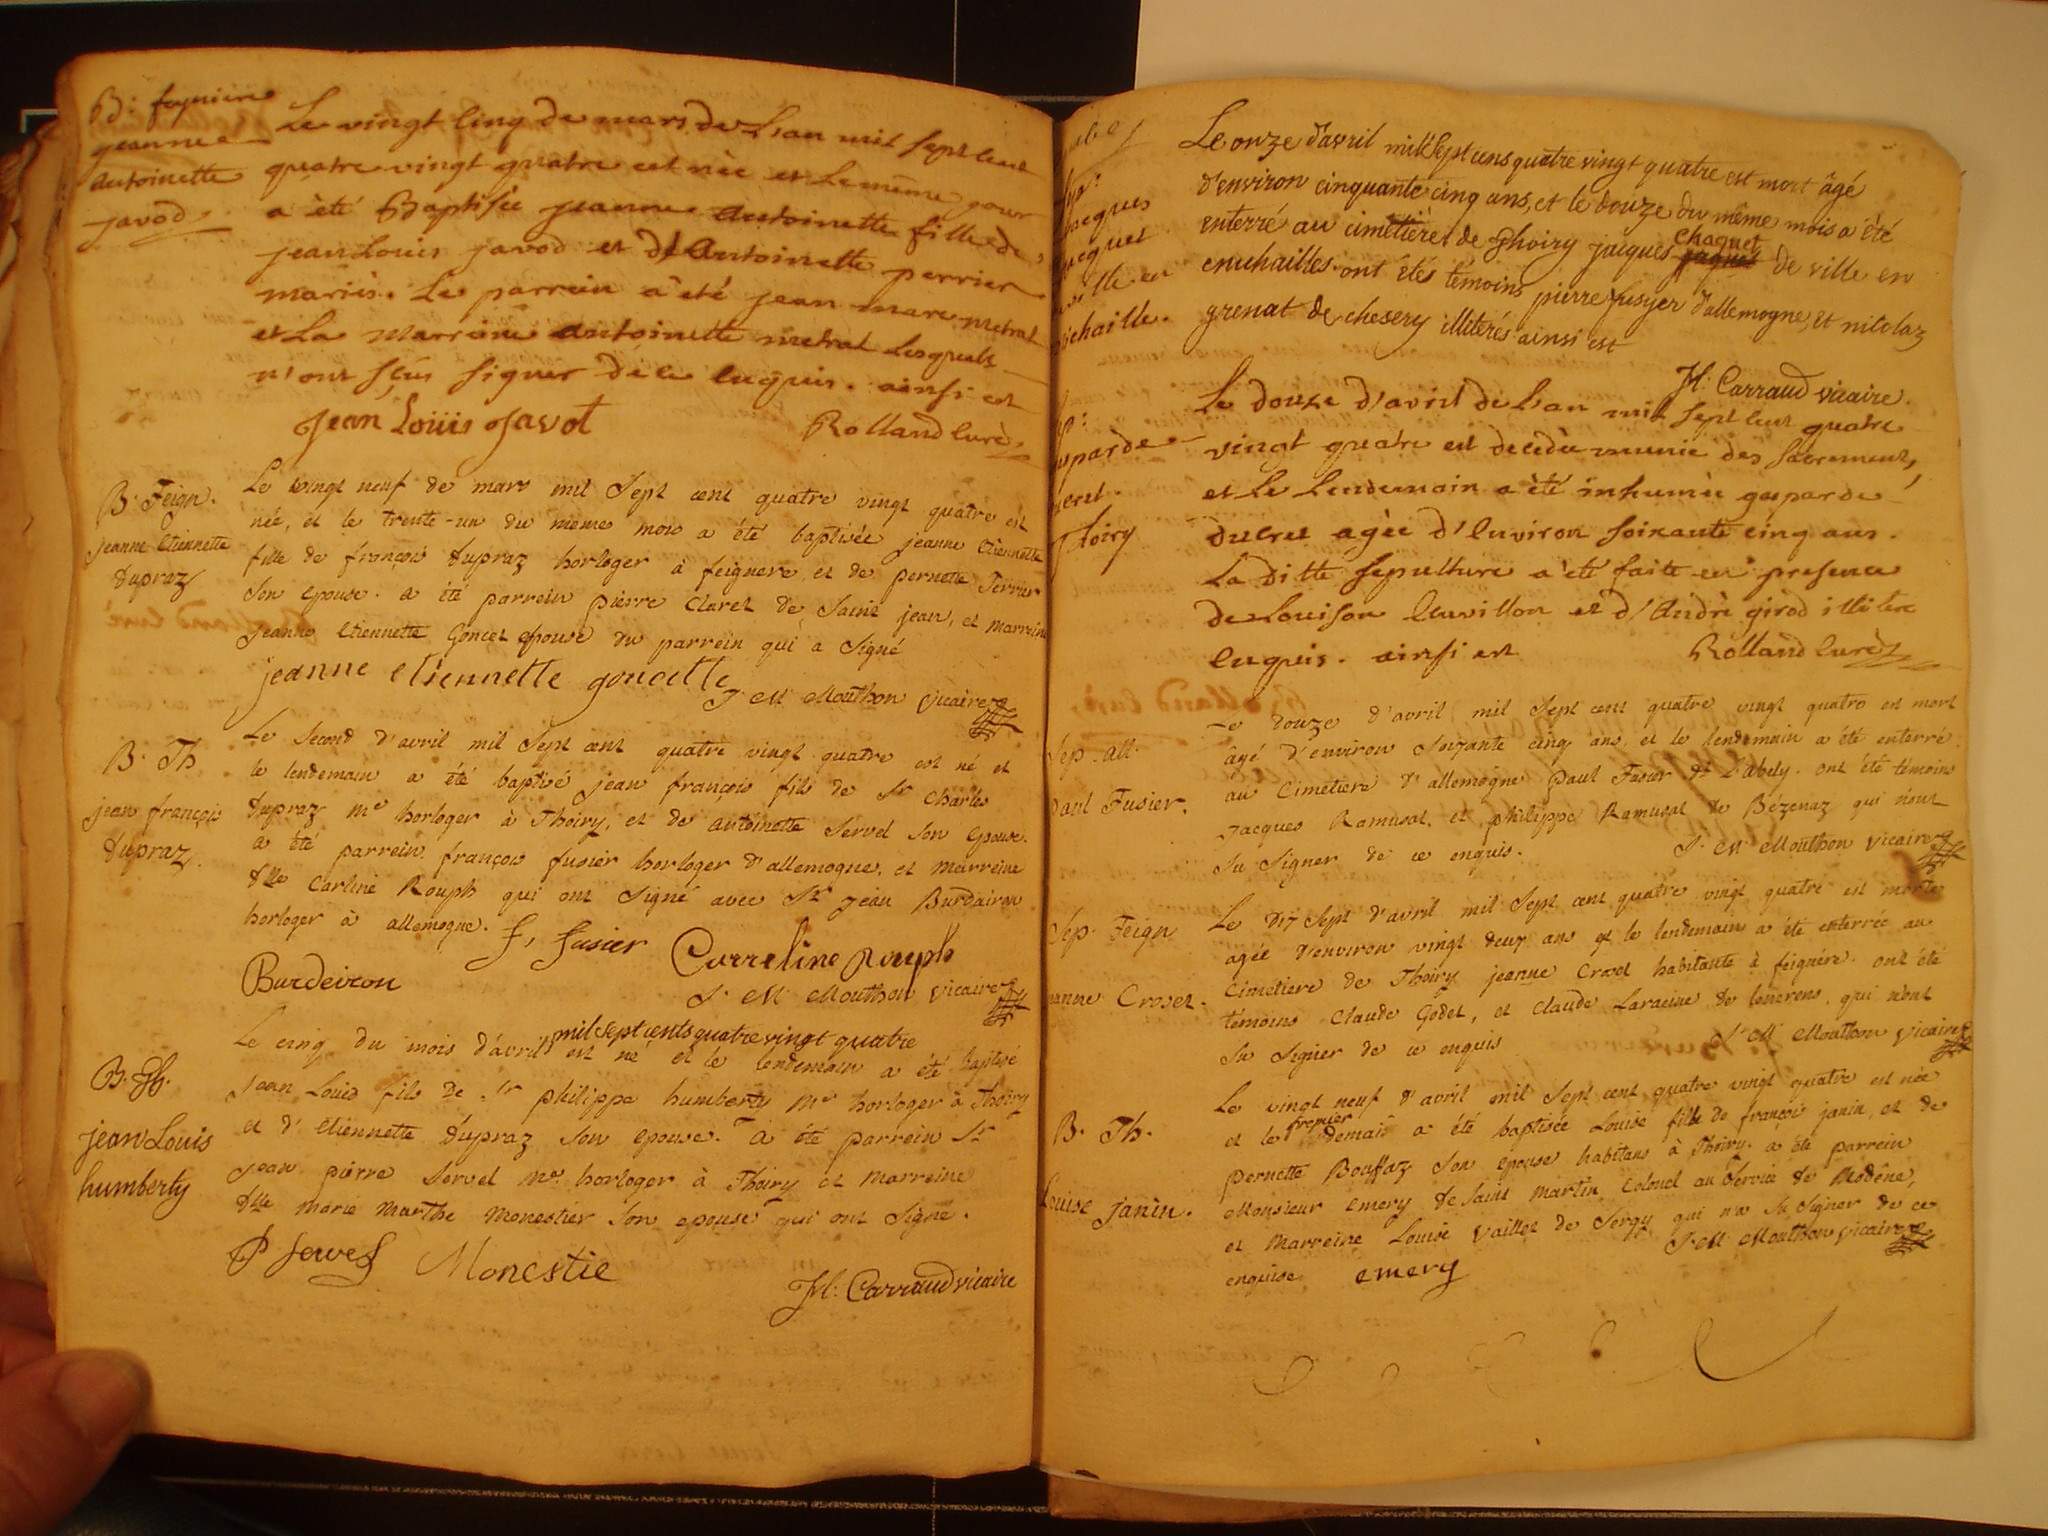 B: feynieres
jeanne
antoinette
javod.
Le vingt cinq de mars de L'an mil sept cent
quatre vingt quatre est née et le même jour
a été Baptisée jeanne antoinette fille de
jean Louis javod et de antoinette perrier
mariés. Le parrein a été jean marc metral
et La Marreine antoinette metral Lesquels
n'ont sçus signer de ce enquis. ainsi est
Jean Loüis Javot
Rolland Curé
B. Feign.
jeanne Etiennette
Dupraz
Le vingt neuf de mars mil Sept cent quatre vingt quatre est
née, et le trente-un du meme mois a été baptisée jeanne Etiennette
fille de françois Dupraz horloger à feignere, et de pernette Perrier
Son epouse. a été parrein pierre Claret de Saint jean, et marreine
jeanne Etiennette Goncet epouse du parrein qui a Signé
jeanne etiennette goncette
J. M. Mouthon Vicaire
B. Th
jean françois
Dupraz.
Le Second d'avril mil Sept cent quatre vingt quatre est né et
le lendemain a été baptisé jean françois fils de Sr Charles
Dupraz Me horloger à Thoiry, et de antoinette Servel Son epouse.
a été parrein françois fusier horloger d'allemogne, et marreine
Dlle Carline Rouph qui ont Signé avec Sr jean Burdairon
horloger à allemogne.
f, fusier
Carreline Rouph
Burdeiron
J. M. Mouthon Vicaire
B. Th.
jean Louis
humberty
Le cinq du mois d'avril mil sept cents quatre vingt quatre est né et le lendemain a été baptisé
Jean Louis fils de Sr philippe humberty Me horloger à Thoiry
et d'Etiennette Dupraz Son epouse. a été parrein Sr
Jean pierre Servel Me horloger à Thoiry et Marreine
Dlle Marie Marthe Monestier Son epouse qui ont Signé.
P Servel
Monestie
JM: Carraud vicaire
Sep:
jacques
jacquet
de ville en
michaille.
Le onze d'avril mil Sept cens quatre vingt quatre est mort âgé
d'environ cinquante cinq ans, et le douze du même mois a été
enterré au cimetière de Thoiry jacques chaquet jaquet de ville en
michailles. ont étés témoins pierre fusyer d'allemogne, et nicolaz
grenat de chesery illiterés ainsi est
JM: Carraud vicaire.
Sep:
gasparde
ducret.
Thoiry
Le douze d'avril de L'an mil sept cent quatre
vingt quatre est decedée munie des sacremens,
et Le Lendemain a été inhumée gasparde
ducret agée d'environ soixante cinq ans.
La ditte sepulture a été faite en presence
de Louison Cuvillon et d'André girod illitere
enquis. ainsi est
Rolland Curé
Sep. all.
Paul Fusier.
Le douze d'avril mil Sept cent quatre vingt quatre est mort
âgé d'environ Soizante cinq ans, et le lendemain a été enterré
au Cimetiere d'allemogne paul Fusier de L'abely. ont été témoins
Jacques Ramusat, et philippe Ramusat de Bézenaz qui n'ont
Su Signer de ce enquis.
J. M. Mouthon Vicaire
Sep. Feign
jeanne Crozet.
Le Dix Sept d'avril mil Sept cent quatre vingt quatre est morte
agée d'environ vingt deux ans et le lendemain a été enterrée au
Cimetiere de Thoiry jeanne Crozet habitante à feignére. ont été
temoins Claude Godet, et Claude Laracine de lonerens, qui n'ont
Su Signer de ce enquis
J. M. Mouthon Vicaire
B. Th.
Louise janin.
Le vingt neuf d'avril mil Sept cent quatre vingt quatre est née
et le premier demais a été baptisée Louise fille de françois janin, et de
pernette Bouffaz Son epouse habitans à Thoiry. a été parrein
Monsieur emery de Saint Martin Colonel au Service de Modêne,
et Marreine Louise Vaillet de Sergy qui n'a Su Signer de ce
enquise
emery
J. M. Mouthon Vicaire